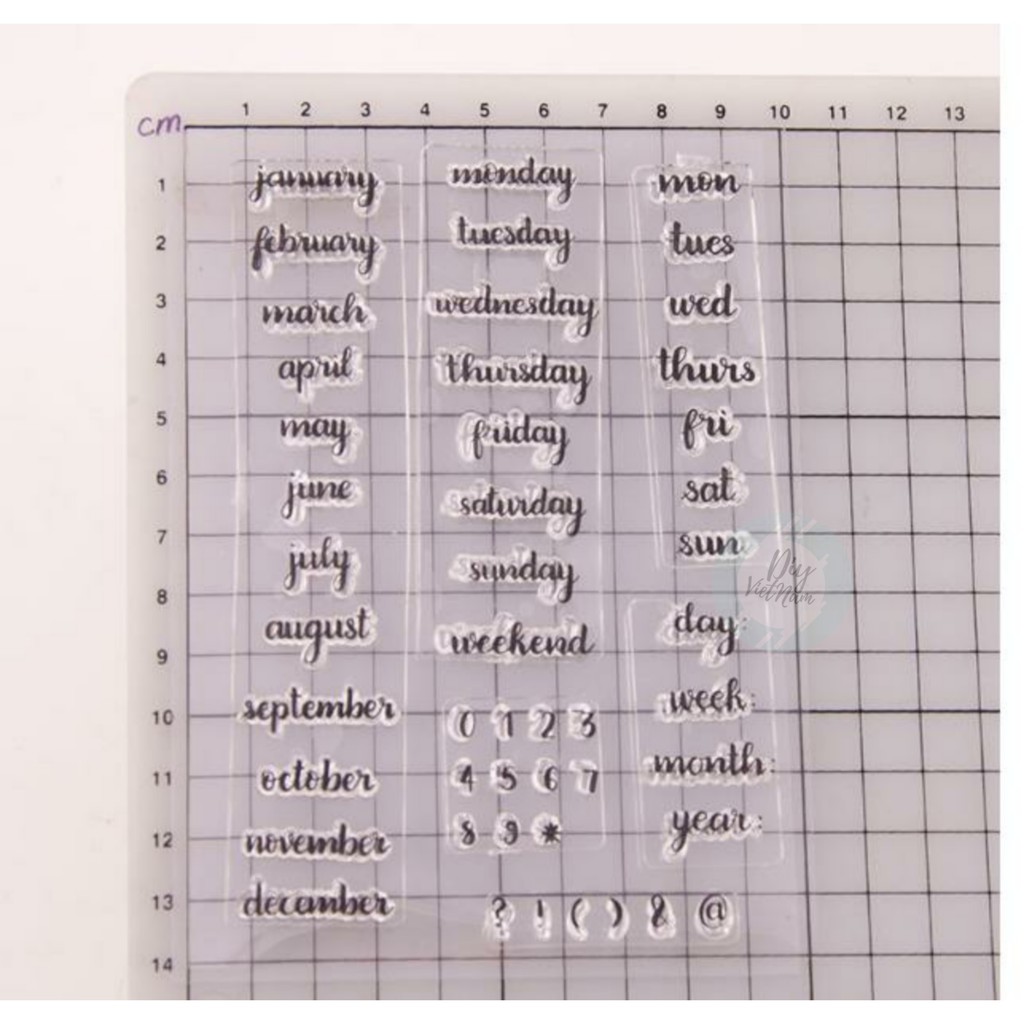 1 2 3 4 5 6 7 8 9 10 11 12 13
cm
1
2
3
4
5
6
7
8
9
10
11
12
13
14
january
february
march
april
may
june
july
august
september
october
november
december
monday
tuesday
wednesday
thursday
friday
saturday
sunday
weekend
0 1 2 3
4 5 6 7
8 9 *
mon
tues
wed
thurs
fri
sat
sun
day:
week:
month:
year:
? ! ( ) & @
Diy
VietNam